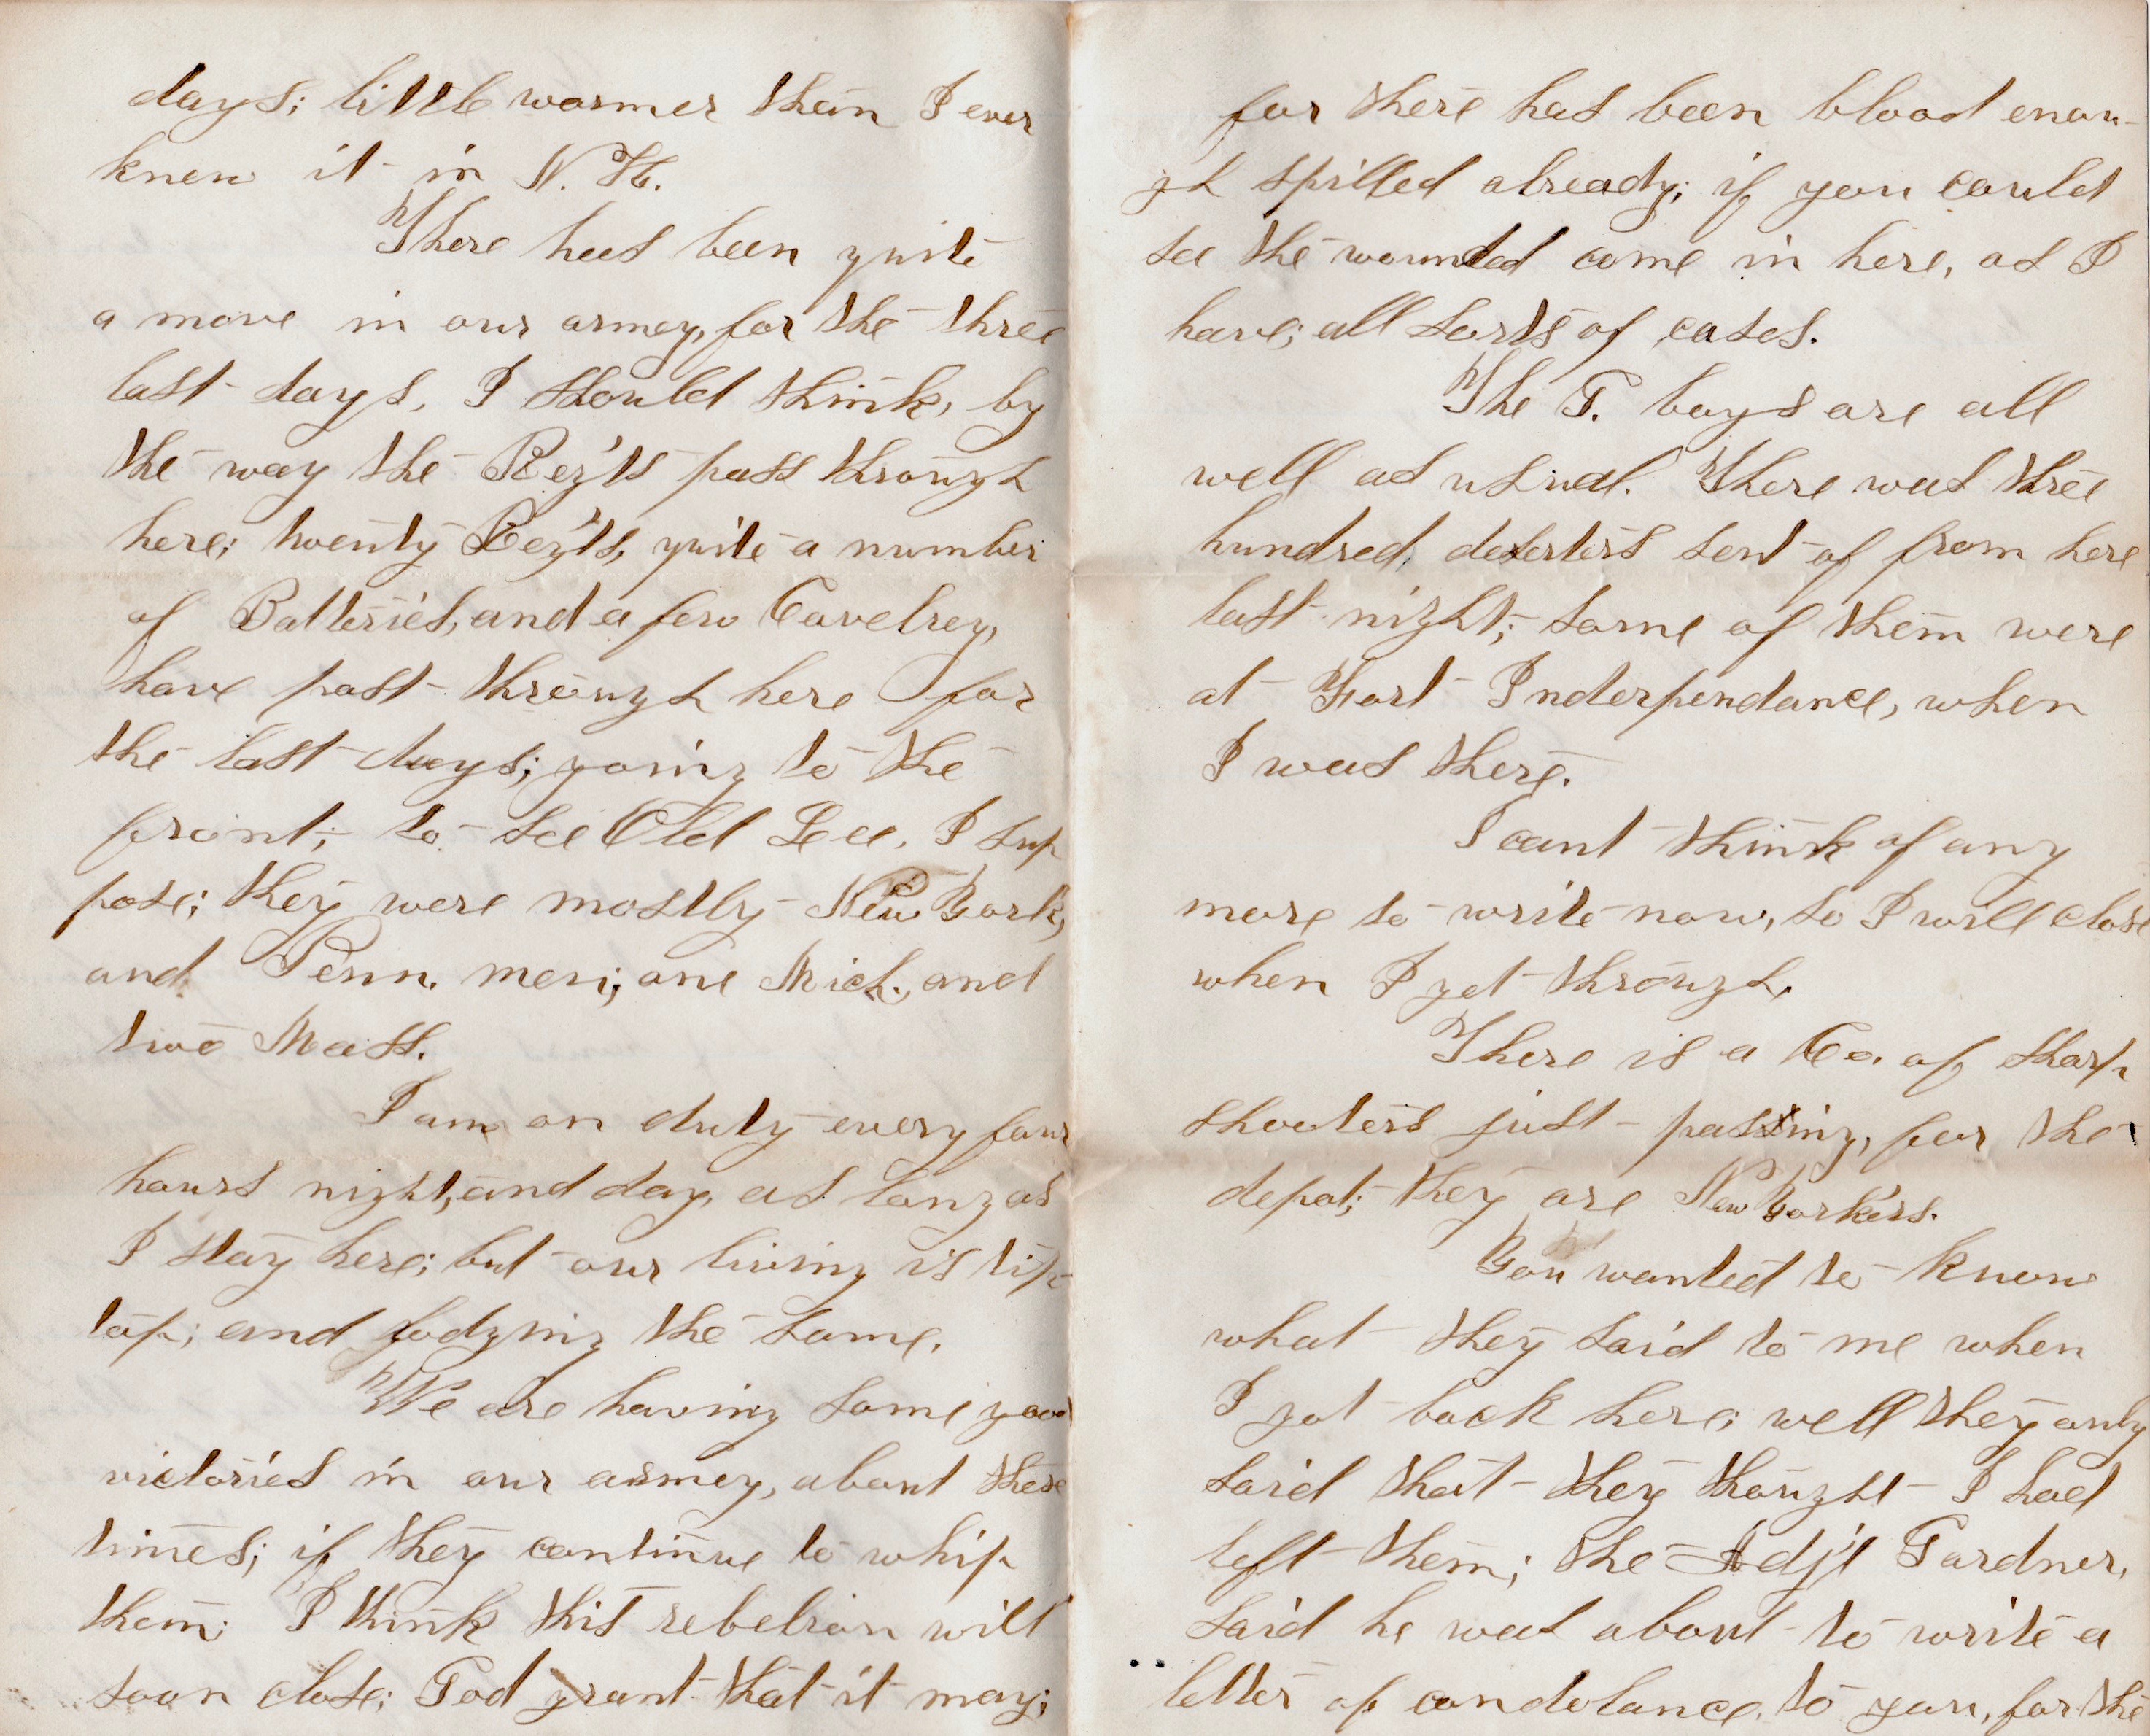 days; little warmer than I ever
knew it in N. H.
There has been quite
a move in our armey, for the three
last days, I should think, by
the way the Reg'ts pass through
here; twenty Reg'ts, quite a number
of Batteries, and a few Cavelrey,
have past through here for
the last days; going to the
front; to see Old Lee, I sup
pose; they were mostly New York,
and Penn. men; one Mich. and
two Mass.
I am on duty every four
hours night, and day, as long as
I stay here; but our living is tip
top; and lodging the same.
We are having some good
victories in our armey, about these
times; if they continue to whip
them; I think this rebelion will
soon close; God grant that it may;
for there has been blood enou-
gh spilled already; if you could
see the wounded come in here, as I
have; all sorts of cases.
The G. boys are all
well as usual. There was three
hundred deserters sent of from here
last night; some of them were
at Fort Inderpendance, when
I was there.
I cant think of any
more to write now, so I will close
when I get through.
There is a Co. of sharp
shooters just passing, for the
depot; they are New Yorkers.
You wanted to know
what they said to me when
I got back here; well they only
said that they thought I had
left them; the Adj't Gardner,
said he was about to write a
letter of condolance, to you, for the